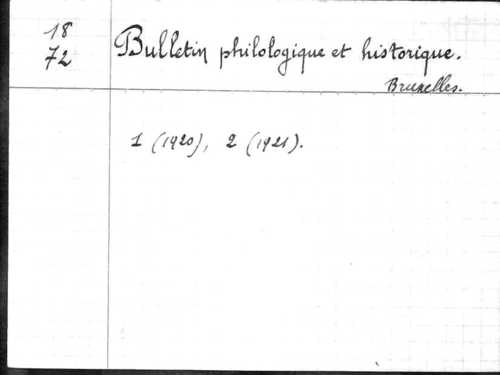 18
72
Bulletin philologique et historique.
Bruxelles.
1 (1920), 2 (1921).